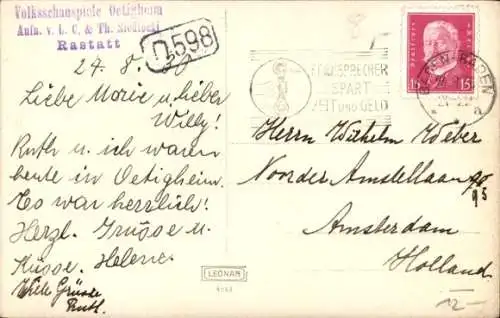 Volksschauspiele Oetigheim
Aufn. v. L. C. & Th. Siedlecki
Rastatt
D.598
24. 8.
Liebe Marie u. lieber
Willy!
Ruth u. ich waren
heute in Oetigheim.
Es war herrlich!
Herzl. Grüsse u.
Küsse. Helene.
Viele Grüsse
Ruth.
LEONAR
FERNSPRECHER
SPART
ZEIT UND GELD
15 15
BADEN-BADEN
Herrn Wilhelm Weber
Noorder Amstellaan
95
Amsterdam
Holland.
12-